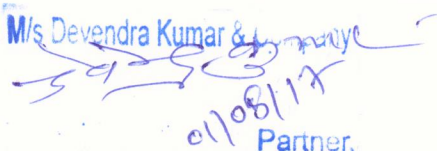 M/s Devendra Kumar & Company
01/08/17
Partner.